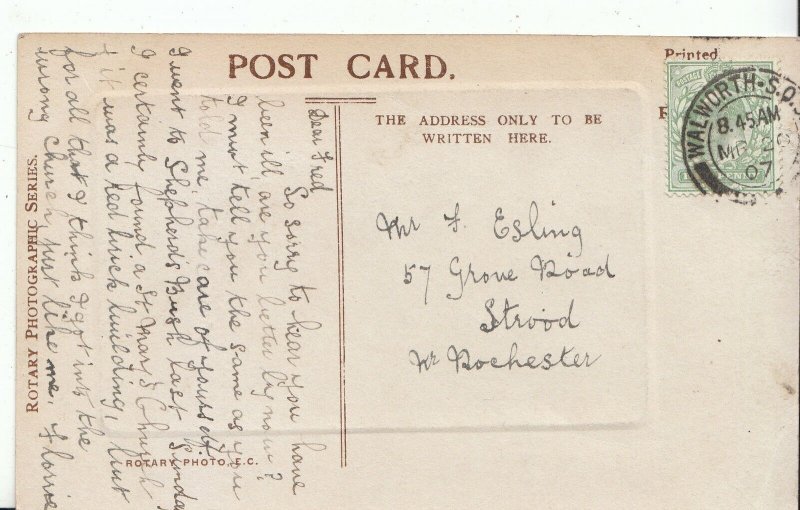 POST CARD.
Printed
THE ADDRESS ONLY TO BE
WRITTEN HERE.
WALWORTH·S.O.
8.45AM
MR
07
Mr F. Esling
57 Grove Road
Strood
Nr Rochester
Dear Fred
So sorry to hear you have
been ill, are you better by now?
I must tell you the same as you
told me, take care of yourself.
I went to Shepherds Bush last Sunday
I certainly found a St Mary's Church
& it was a red brick building, but
for all that I think I got into the
wrong church, just like me,
ROTARY PHOTOGRAPHIC SERIES.
ROTARY PHOTO, E.C.